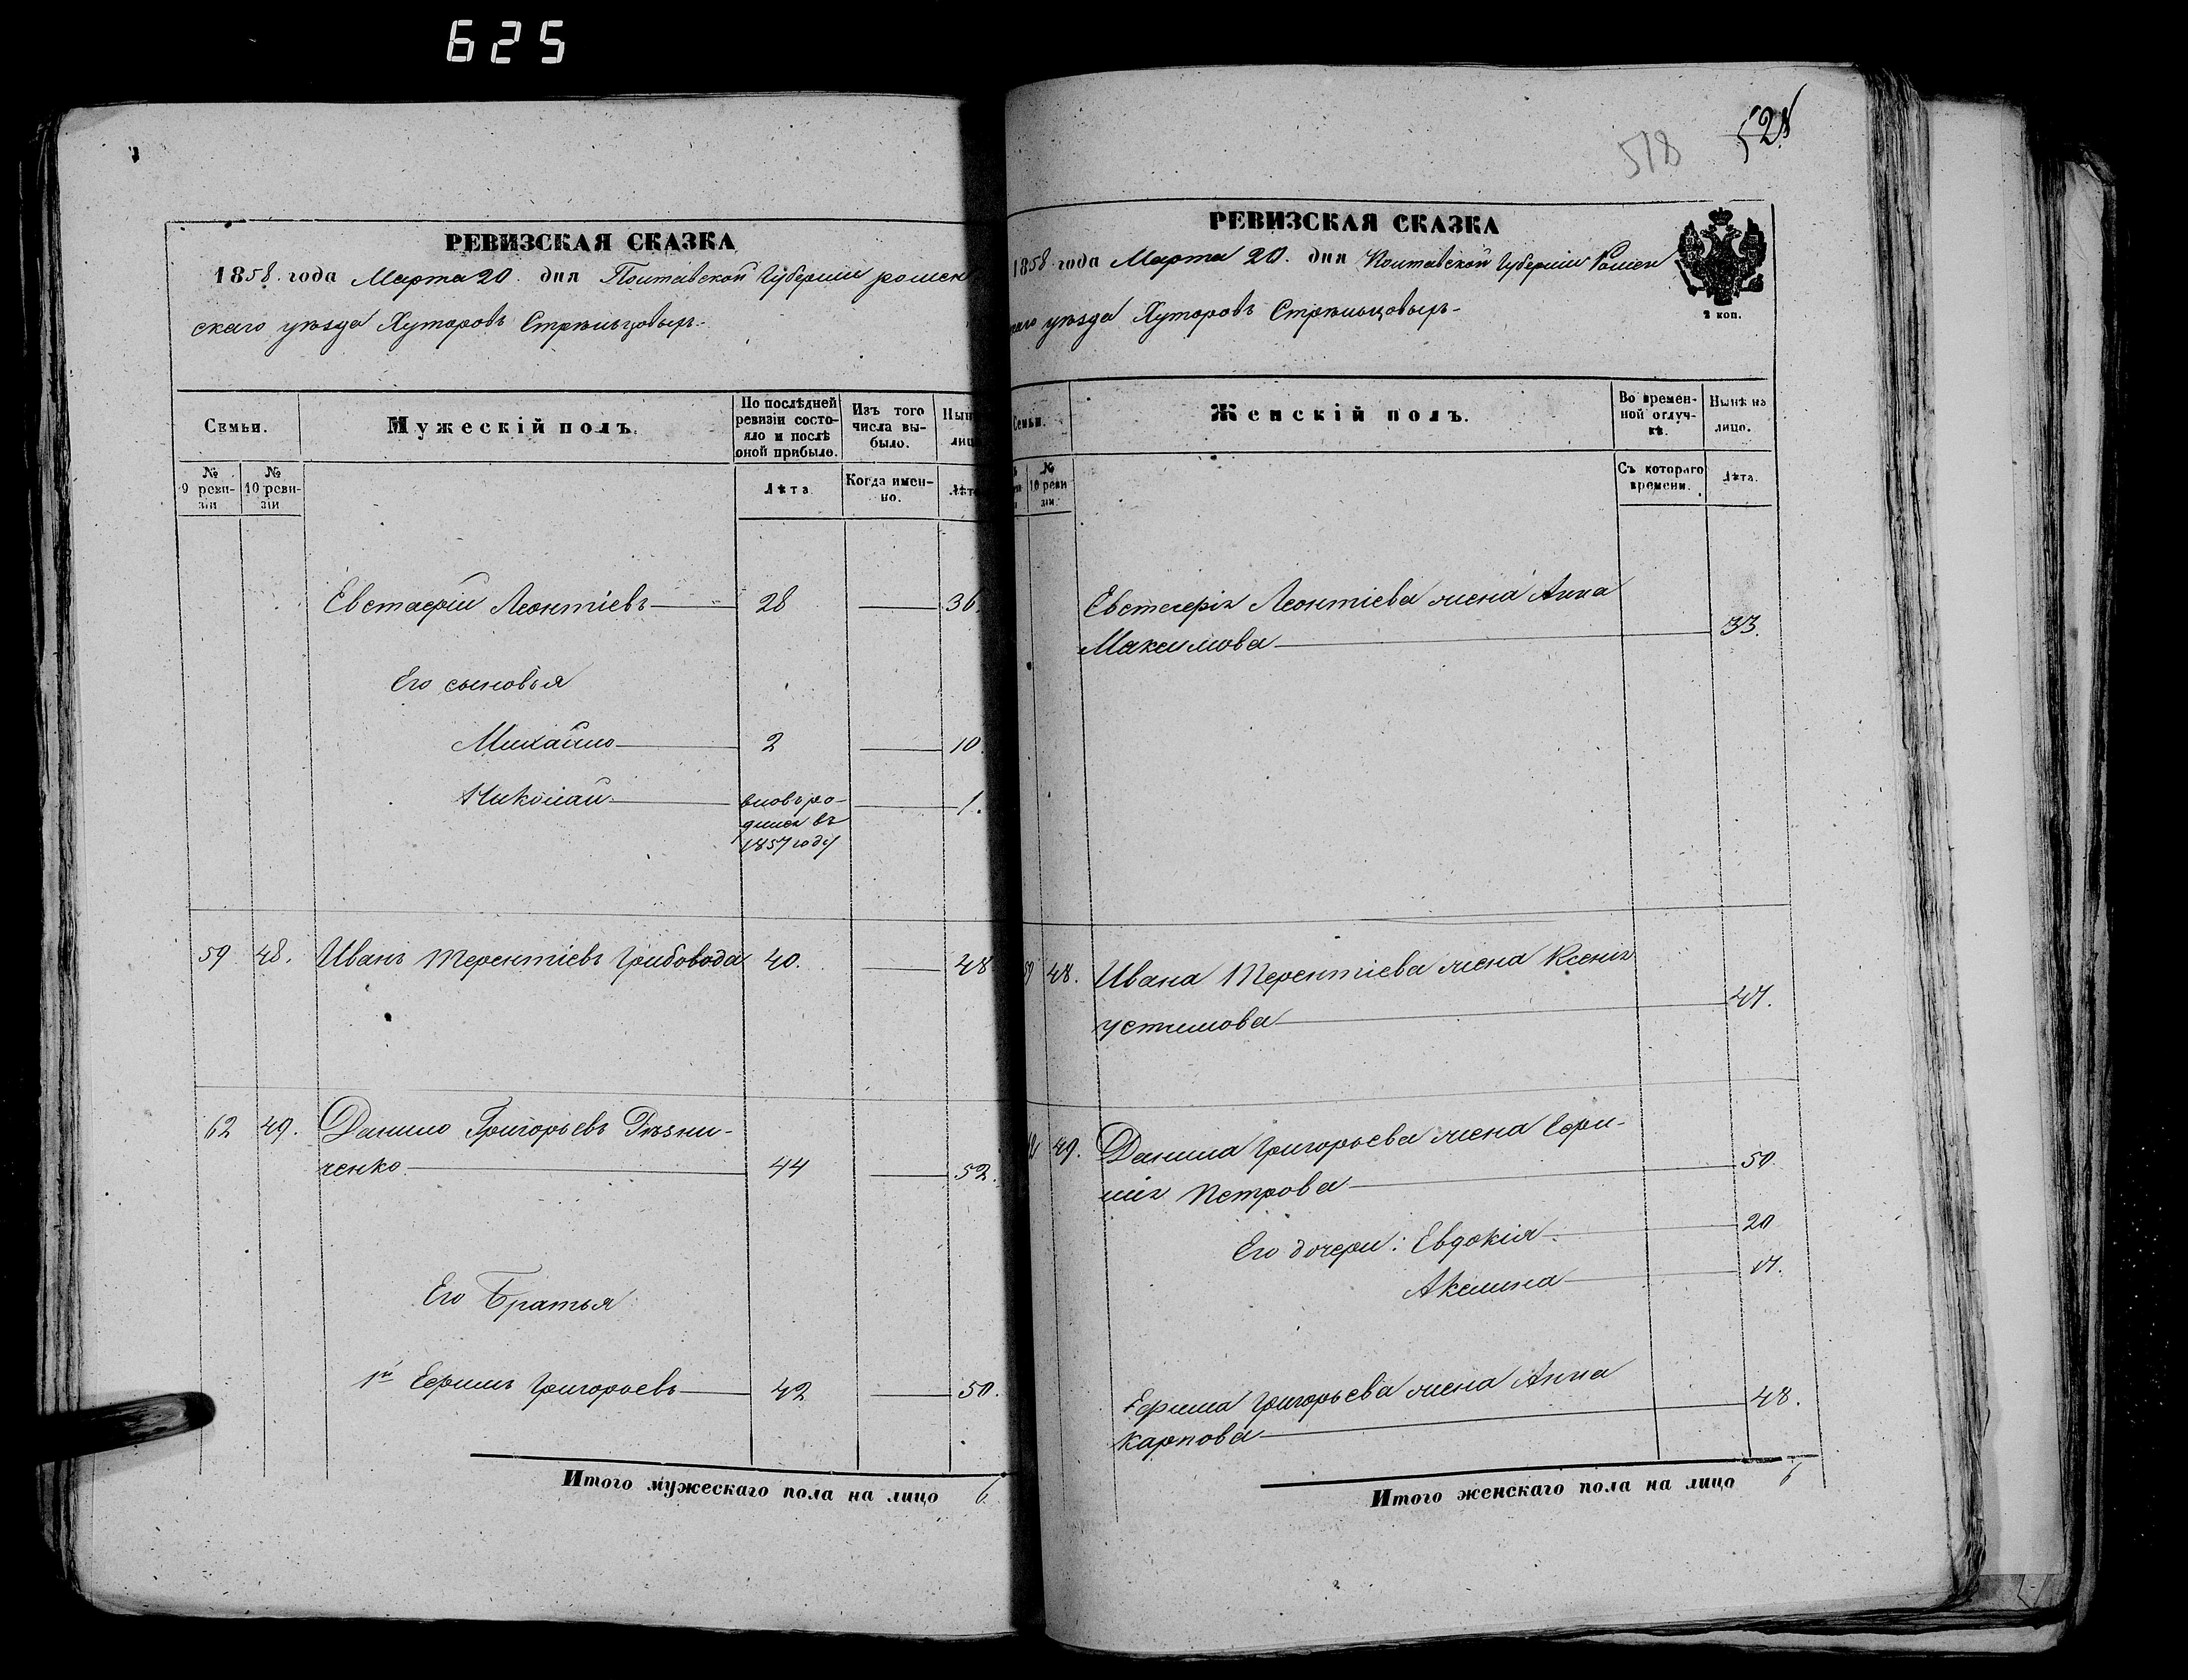 625
РЕВИЗСКАЯ СКАЗКА
1858 года Марта 20 дня Полтавской Губерніи ромен
скаго уѣзда Хуторовъ Стрѣльцовыхъ
Семьи.
Мужескій полъ.
По послѣдней ревизіи состояло и послѣ оной прибыло.
Изъ того числа выбыло.
Нын
лиц
№ 9 ревизіи
№ 10 ревизіи
Лѣта
Когда именно.
Лѣт
Евстафій Леонтіевъ 28 36.
Его сыновья
Михайло 2 10.
Николай вновь ро- 1.
дился въ
1857 году
59 48. Иванъ Терентіевъ Грибовода 40. 48
62 49. Данило Григорьевъ
ченко 44 52.
Его Братья
1й Ефимъ Григорьевъ 42 50.
Итого мужескаго пола на лицо 6
518 528
РЕВИЗСКАЯ СКАЗКА
1858 года Марта 20. дня Полтавской Губерніи Ромен
скаго уѣзда Хуторовъ Стрѣльцовыхъ
2 коп.
Семьи.
Женскій полъ.
Во временной отлучкѣ.
Нынѣ на лицо.
№ 10 ревизіи.
Съ котораго времени.
Лѣта.
Евстафія Леонтіева жена Анна
Максимова 33.
59 48. Ивана Терентіева жена Ксенія
Устимова 47.
62 49. Данила Григорьева жена Ефи-
мія Петрова 50
Его дочери: Евдокія 20
Акилина 17.
Ефима Григорьева жена Анна
Карпова 48.
Итого женскаго пола на лицо 6